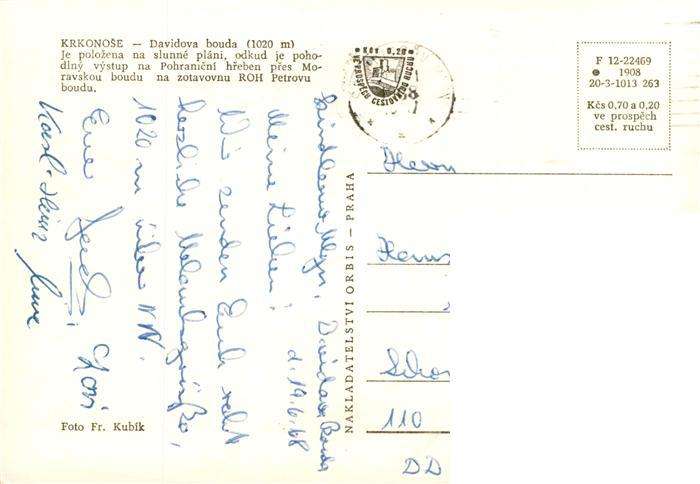 KRKONOŠE — Davidova bouda (1020 m)
Je položena na slunné pláni, odkud je poho-
dlný výstup na Pohraniční hřeben přes Mo-
ravskou boudu na zotavovnu ROH Petrovu
boudu.
Kčs 0,20
VE PROSPĚCH CESTOVNÍHO RUCHU
F 12-22469
1908
20-3-1013 263
Kčs 0,70 a 0,20
ve prospěch
cest. ruchu
Spindleruv Mlyn, Davidova Bouda
d. 19.6.68
Meine Lieben!
Wir senden Euch recht
herzliche Urlaubsgrüße,
1020 m über NN.
Eure
Karl-Heinz
NAKLADATELSTVÍ ORBIS — PRAHA
Herrn
110
DD
Foto Fr. Kubík